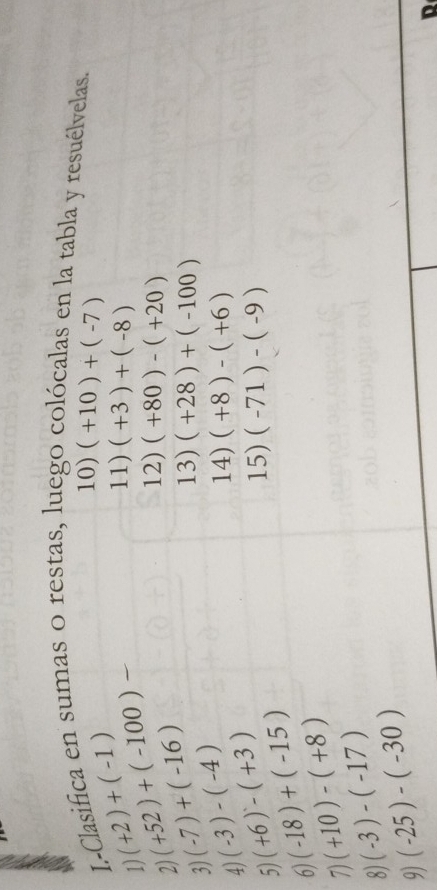 I.-Clasifica en sumas o restas, luego colócalas en la tabla y resuélvelas.
1) ( +2 ) + ( -1 )
2) ( +52 ) + ( -100 )
3) ( -7 ) + ( -16 )
4) ( -3 ) - ( -4 )
5) ( +6 ) - ( +3 )
6) ( -18 ) + ( -15 )
7) ( +10 ) - ( +8 )
8) ( -3 ) - ( -17 )
9) ( -25 ) - ( -30 )
10) ( +10 ) + ( -7 )
11) ( +3 ) + ( -8 )
12) ( +80 ) - ( +20 )
13) ( +28 ) + ( -100 )
14) ( +8 ) - ( +6 )
15) ( -71 ) - ( -9 )